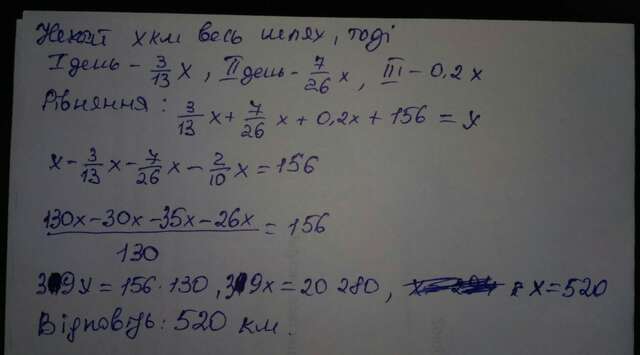 Нехай x км весь шлях, тоді
I день - 3/13 x, II день - 7/26 x, III - 0,2x
Рівняння: 3/13 x + 7/26 x + 0,2x + 156 = x
x - 3/13 x - 7/26 x - 2/10 x = 156
(130x - 30x - 35x - 26x)/130 = 156
39x = 156 · 130, 39x = 20 280, x = 520
Відповідь: 520 км.